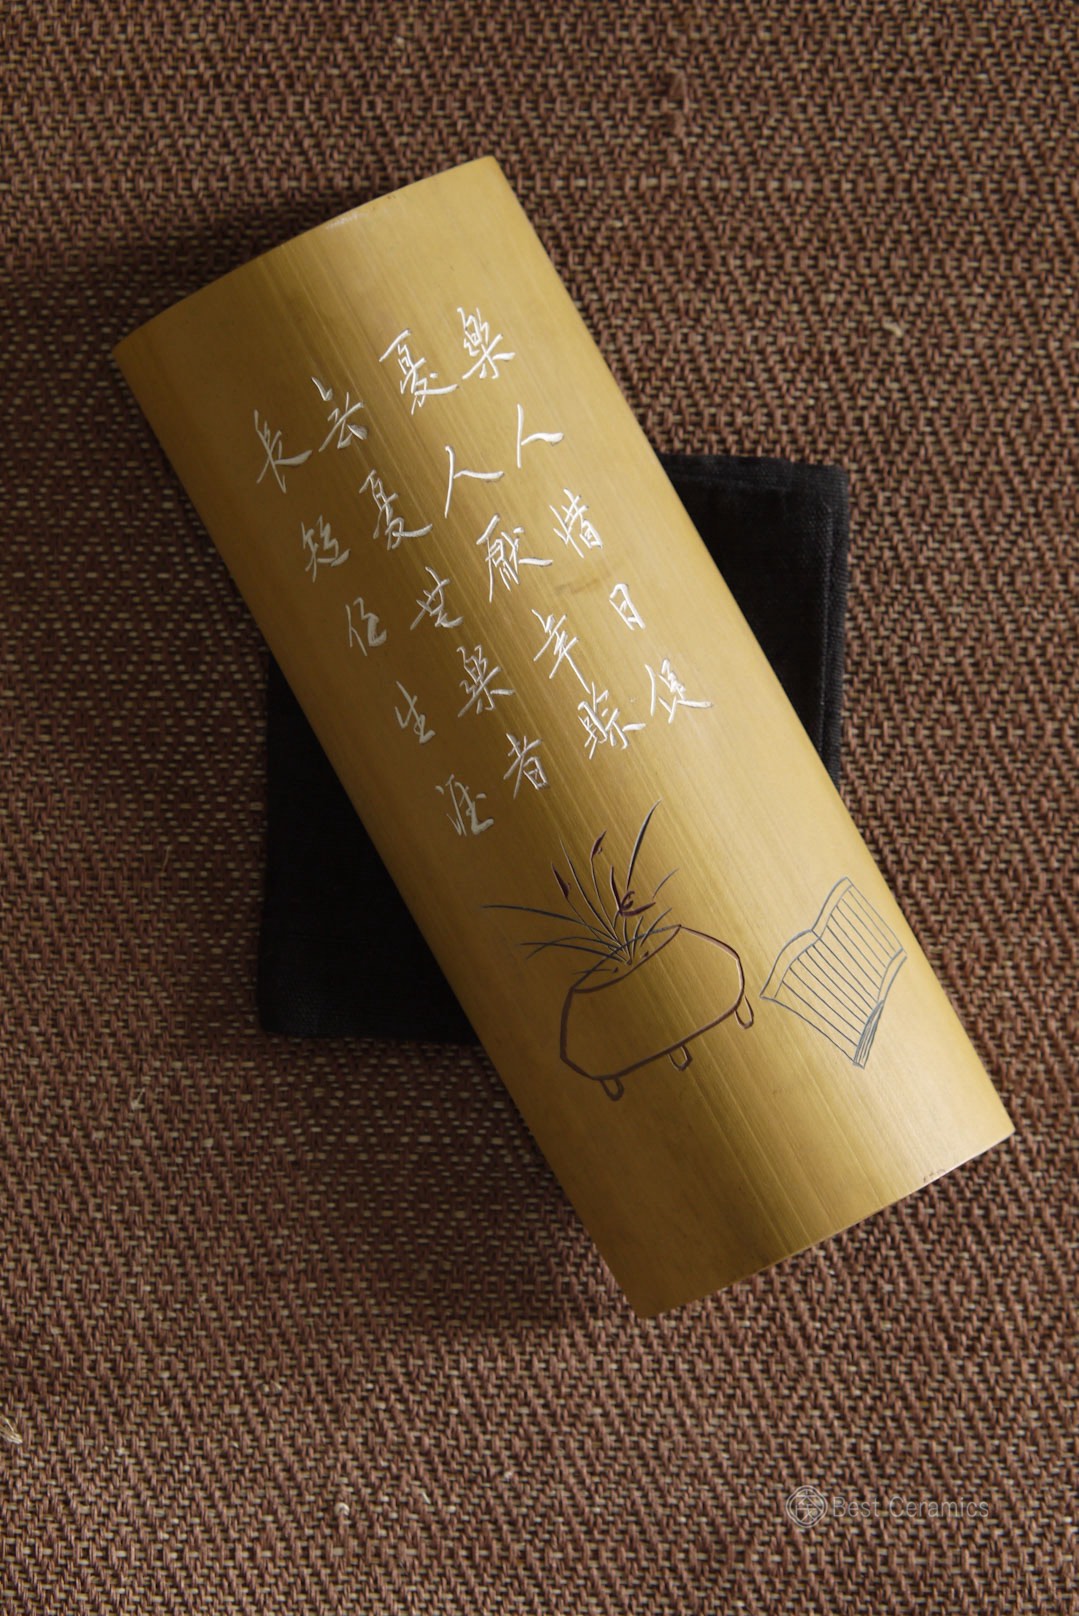 樂人惜日促
憂人厭年賒
無憂無樂者
長短任生涯
Best Ceramics